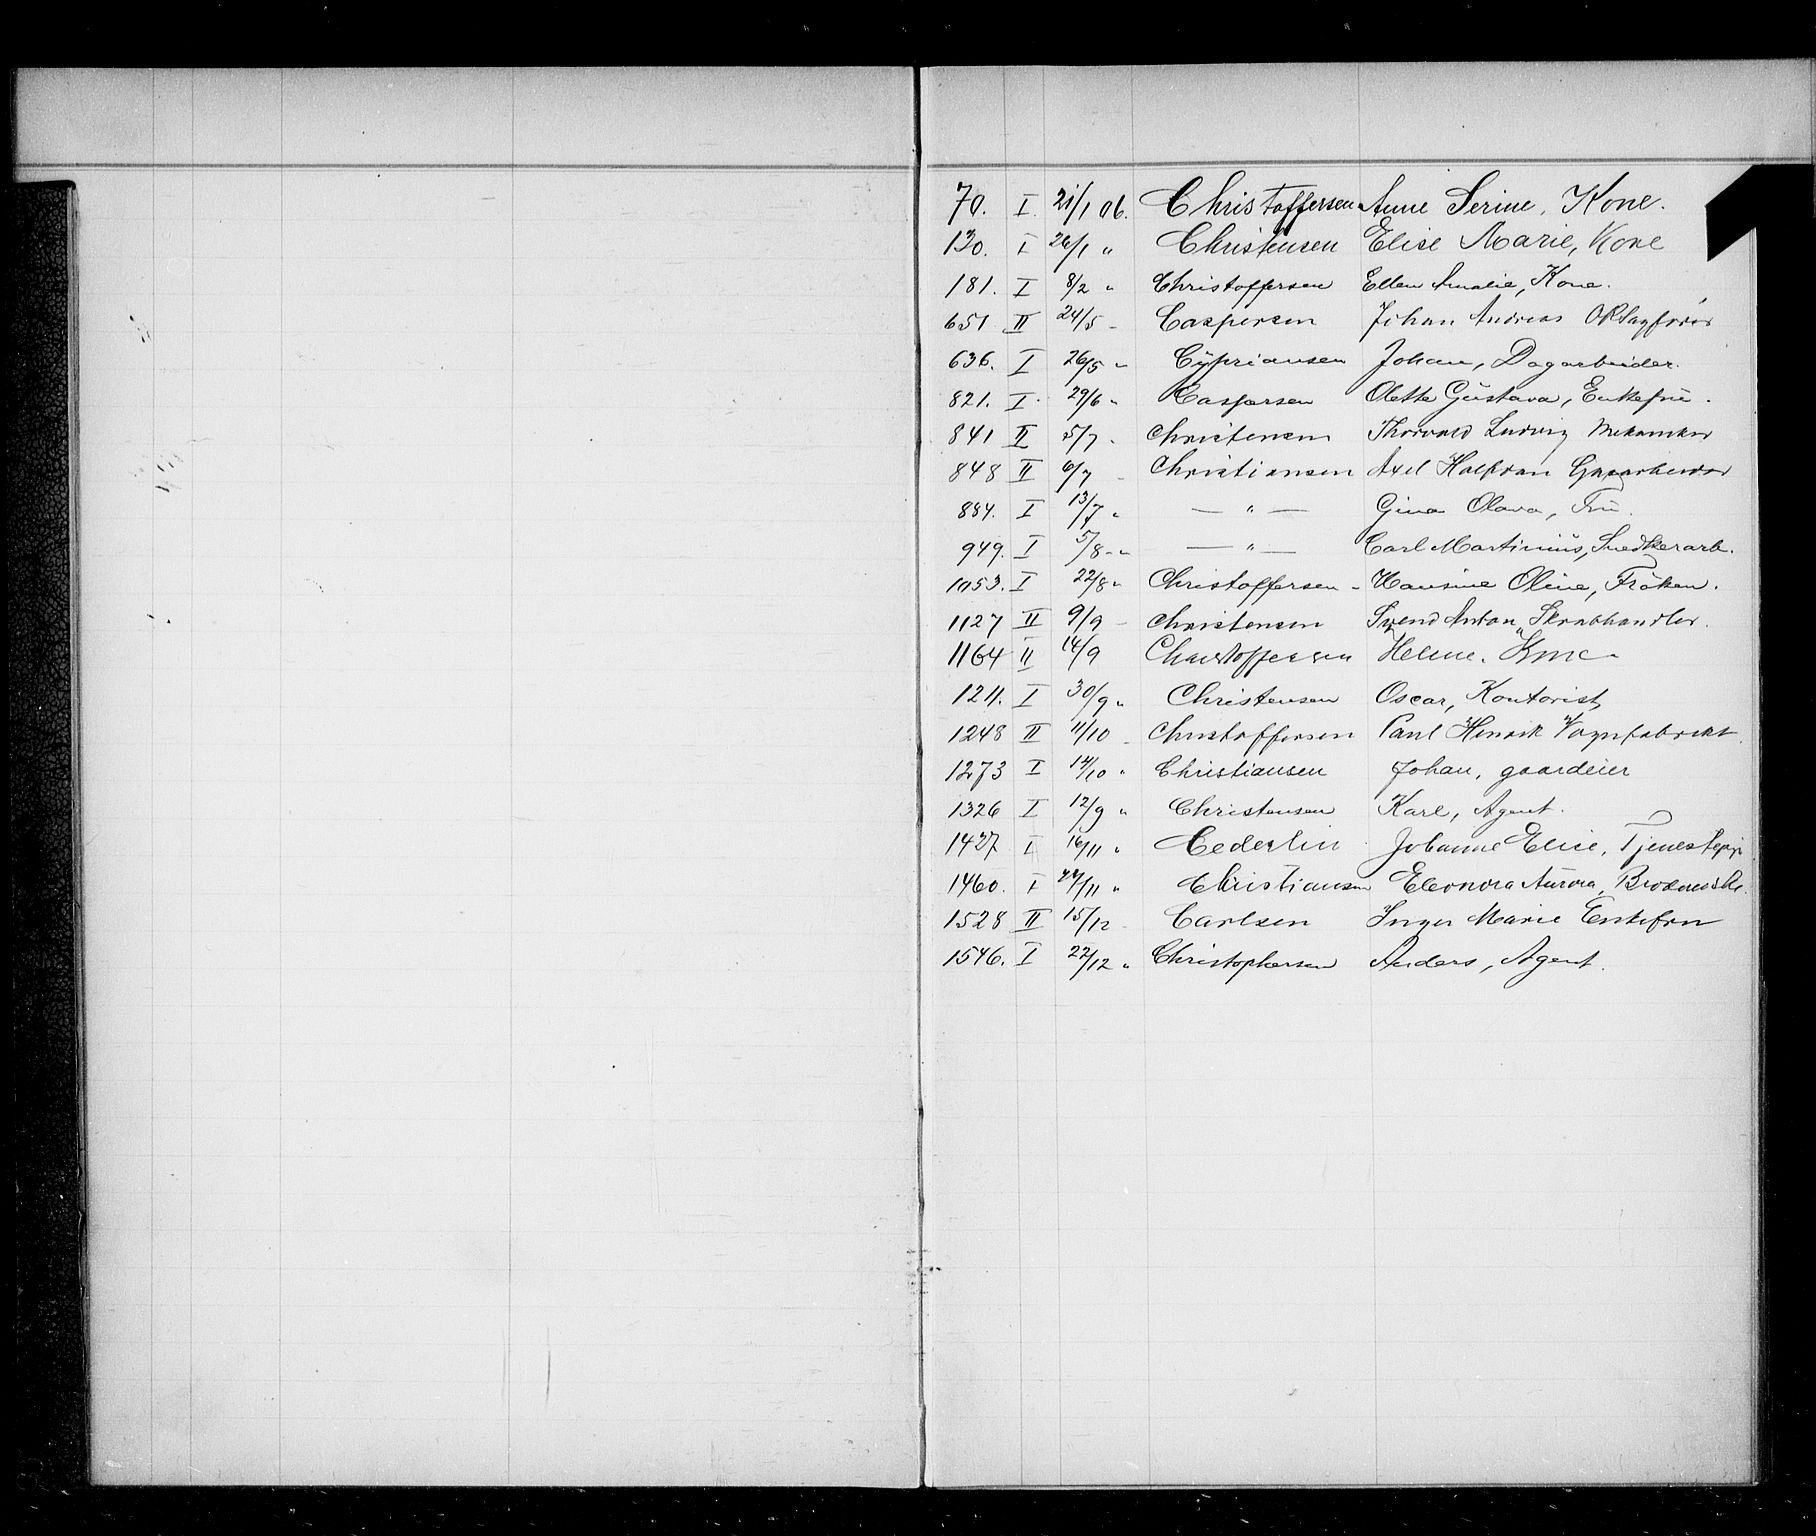 70. I. 21/1 06. Christoffersen Anne Serine, Kone.
130. I 26/1 " Christensen Elise Marie, Kone
181. I 8/2 " Christoffersen Ellen Amalie, Kone.
651 II 24/5 - Caspersen Johan Andreas
636. I 26/5 " Cypriansen Johan, Dagarbeider.
821. I. 29/6 " Caspersen Olette Gustava, Enkefru.
841 II 5/7 . Christensen Thorvald Ludvig Mekaniker
848 II 6/7 - Christiansen Axel Halfdan
884. I 13/7 " — " — Gina Olava, Fru.
949. I 5/8 - " — " — Carl Martinius, Snedkerarb.
1053. I 22/8 " Christoffersen - Hansine Oline, Frøken.
1127 II 9/9 - Christensen Svend Anton, Skrabhandler.
1164 II 14/9 Christoffersen Helene. Kone
1211. I 30/9 " Christensen Oscar, Kontorist,
1248 II 11/10 - Christoffersen Paul Henrik Vognfabrikt.
1273 I 14/10 " Christiansen Johan, gaardeier
1326 I 12/9 " Christensen Karl, Agent.
1427 I 16/11 " Cederlin Johanne Elise, Tjenestepi
1460. I 24/11 " Christiansen Eleonora Aurora,
1528 II 15/12 - Carlsen Inger Marie Enkefru
1546. I 22/12 " Christophersen Anders, Agent.